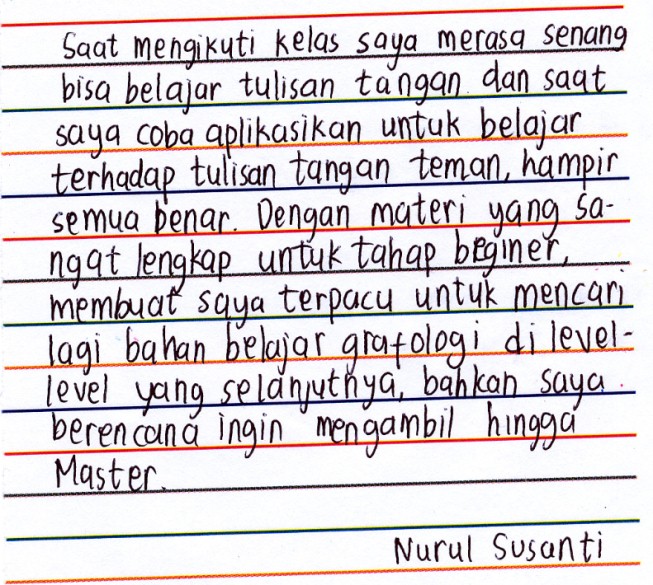 Saat mengikuti kelas saya merasa senang
bisa belajar tulisan tangan. dan saat
saya coba aplikasikan untuk belajar
terhadap tulisan tangan teman, hampir
semua benar. Dengan materi yang sa-
ngat lengkap untuk tahap beginer,
membuat saya terpacu untuk mencari
lagi bahan belajar grafologi di level-
level yang selanjutnya, bahkan saya
berencana ingin mengambil hingga
Master.
Nurul Susanti